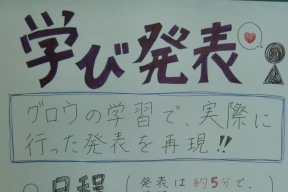 学び発表
グロウの学習で、実際に
行った発表を再現!!
日程(発表は約5分で、